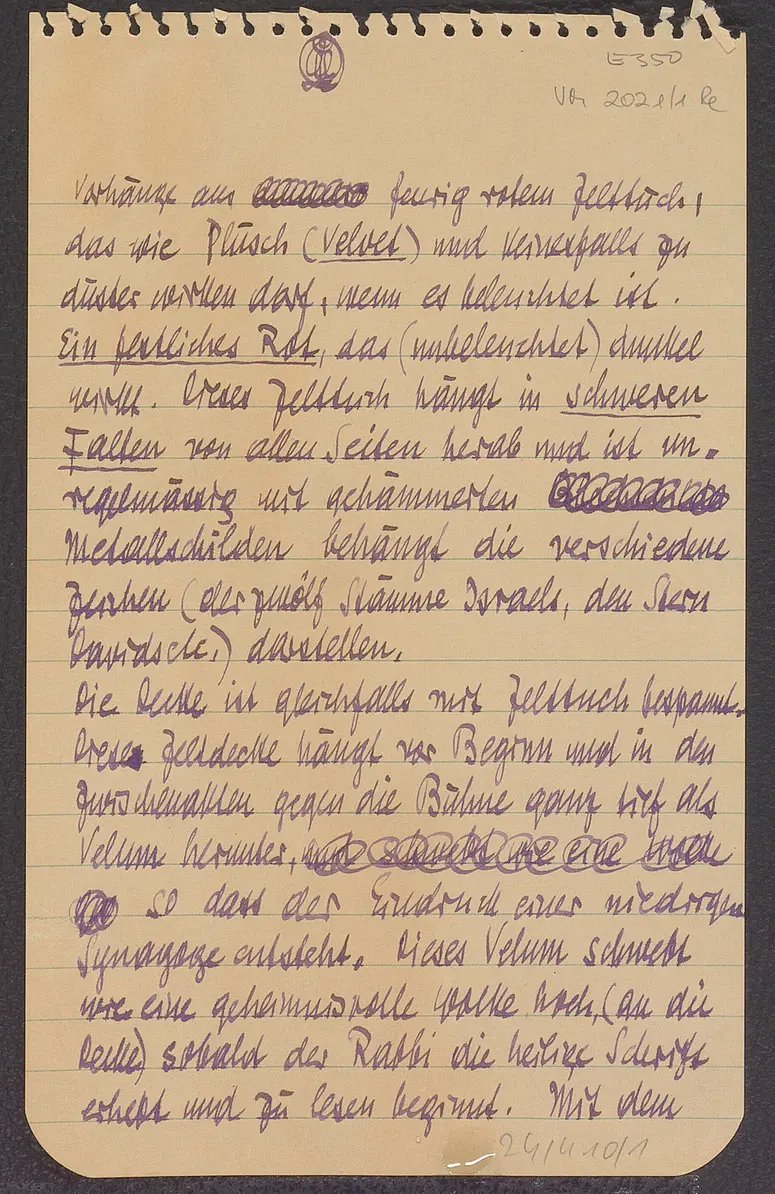 E 350
Von 202 1/1 Re
Vorhänge aus feurig rotem Zelttuch,
das wie Plüsch (Velvet) und keinesfalls zu
düster wirken darf, wenn es beleuchtet ist.
Ein festliches Rot, das (unbeleuchtet) dunkel
wirkt. Dieses Zelttuch hängt in schweren
Falten von allen Seiten herab und ist un-
regelmässig mit gehämmerten
Metallschilden behängt die verschiedene
Zeichen (der zwölf Stämme Israels, den Stern
Davids etc.) darstellen.
Die Decke ist gleichfalls mit Zelttuch bespannt.
Diese Zeltdecke hängt vor Beginn und in den
Zwischenakten gegen die Bühne ganz tief als
Velum herunter, und schwebt wie eine Wolke
so dass der Eindruck einer niedrigen
Synagoge entsteht. Dieses Velum schwebt
wie eine geheimnisvolle Wolke hoch, (an die
Decke) sobald der Rabbi die heilige Schrift
erhebt und zu lesen beginnt. Mit dem
24/4 10/1